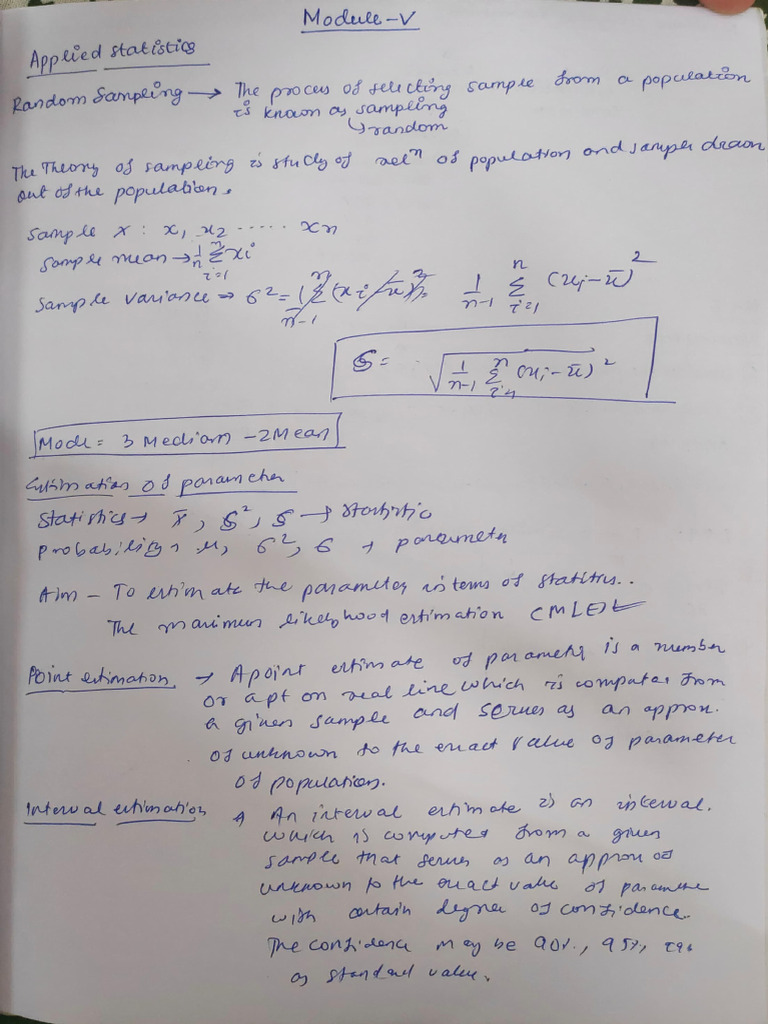 Module-V
Applied statistics
Random Sampling → The proces of selecting sample from a population
is known as sampling
↳ random
The Theory of sampling is study of relⁿ of population and samper drawn
out of the population.
Sample X : x₁ x₂ ..... xn
Sample mean → 1/n Σ(i=1 to n) xi
Sample variance → 6² = 1/(n-1) Σ(i=1 to n) (xi - x̄)²
S = √(1/(n-1) Σ(i=1 to n) (xi - x̄)²)
Mode = 3 Median - 2 Mean
Estimation of parameter
Statistics → x̄, S², S → statistic
Probability → μ, 6², 6 → parameter
Aim - To estimate the parameter in terms of statitics..
The maximum likelyhood estimation (MLE)
Point estimation → A point estimate of parameter is a number
or a pt on real line which is computed from
a given sample and serves as an approx.
of unknown to the exact value of parameter
of population.
Interval estimation → An interval estimate is an interval.
which is computed from a given
sample that serves as an approx of
unknown to the exact value of parameter
with certain degree of confidence.
The confidence may be 90%, 95%,
as standard value.